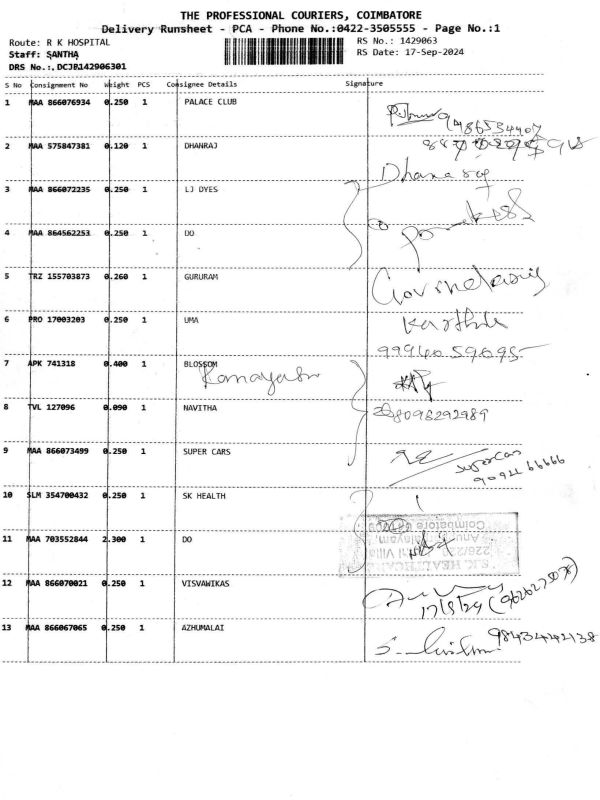 THE PROFESSIONAL COURIERS, COIMBATORE
Delivery Runsheet - PCA - Phone No.:0422-3505555 - Page No.:1
Route: R K HOSPITAL RS No.: 1429063
Staff: SANTHA RS Date: 17-Sep-2024
DRS No.:
S No Consignment No Weight PCS Consignee Details Signature
1 MAA 866076934 0.250 1 PALACE CLUB
2 MAA 575847381 0.120 1 DHANRAJ
Dhanaraj
3 MAA 866072235 0.250 1 LJ DYES
4 MAA 864562253 0.250 1 DO
5 TRZ 155703873 0.260 1 GURURAM
6 PRO 17003203 0.250 1 UMA
Karthik
99940 59695
7 APK 741318 0.400 1 BLOSSOM
8 TVL 127096 0.090 1 NAVITHA
8098292989
9 MAA 866073499 0.250 1 SUPER CARS
Super Cars
90924 66666
10 SLM 354700432 0.250 1 SK HEALTH
11 MAA 703552844 2.300 1 DO
S.K. HEALTHCARE
12 MAA 866070021 0.250 1 VISVAWIKAS
17/9/24 (9626275078)
13 MAA 866067065 0.250 1 AZHUMALAI
98434442138